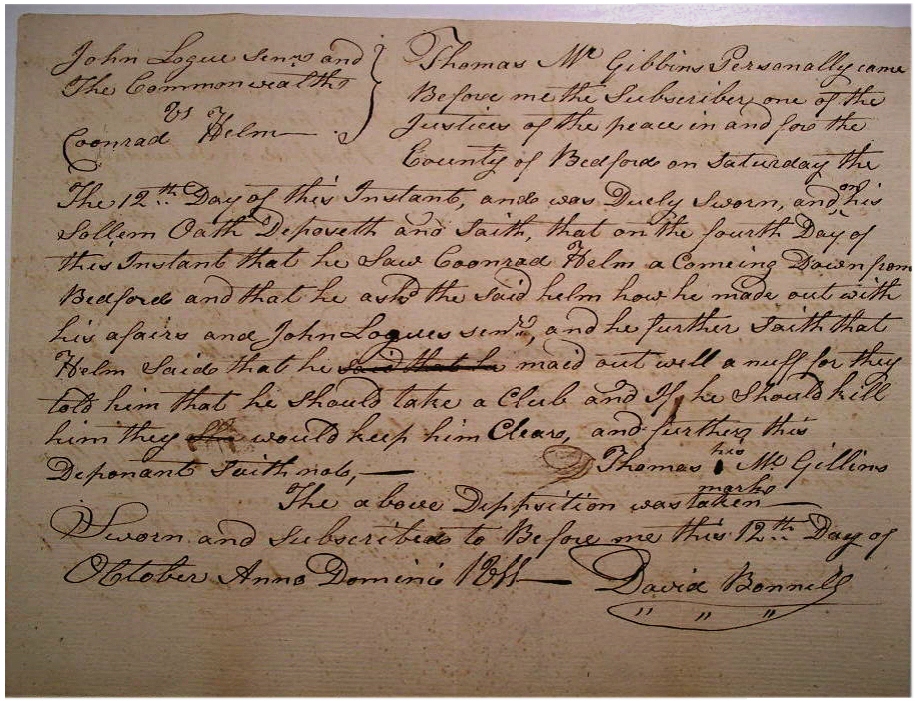 John Logue Senr and
The Commonwealth
vs
Coonrad Helm
Thomas Mc Gibbins Personally came
Before me the Subscriber one of the
Justices of the peace in and for the
County of Bedford on Saturday the
The 12th Day of this Instant, and was Duely Sworn, and on his
Sollem Oath Deposeth and Saith, that on the fourth Day of
this Instant that he Saw Coonrad Helm a Comeing Down from
Bedford and that he askd the Said helm how he made out with
his afairs and John Logues senrs and he further Saith that
Helm Said that he said that he maid out well a nuff for they
told him that he Should take a Club and If he Should kill
him they would keep him Clear, and further this
Deponant Saith not,
Thomas his Mc Gibbins
mark
The above Deppisition was taken
Sworn and Subscribed to Before me this 12th Day of
October Anno Domini 1811
David Bonnell